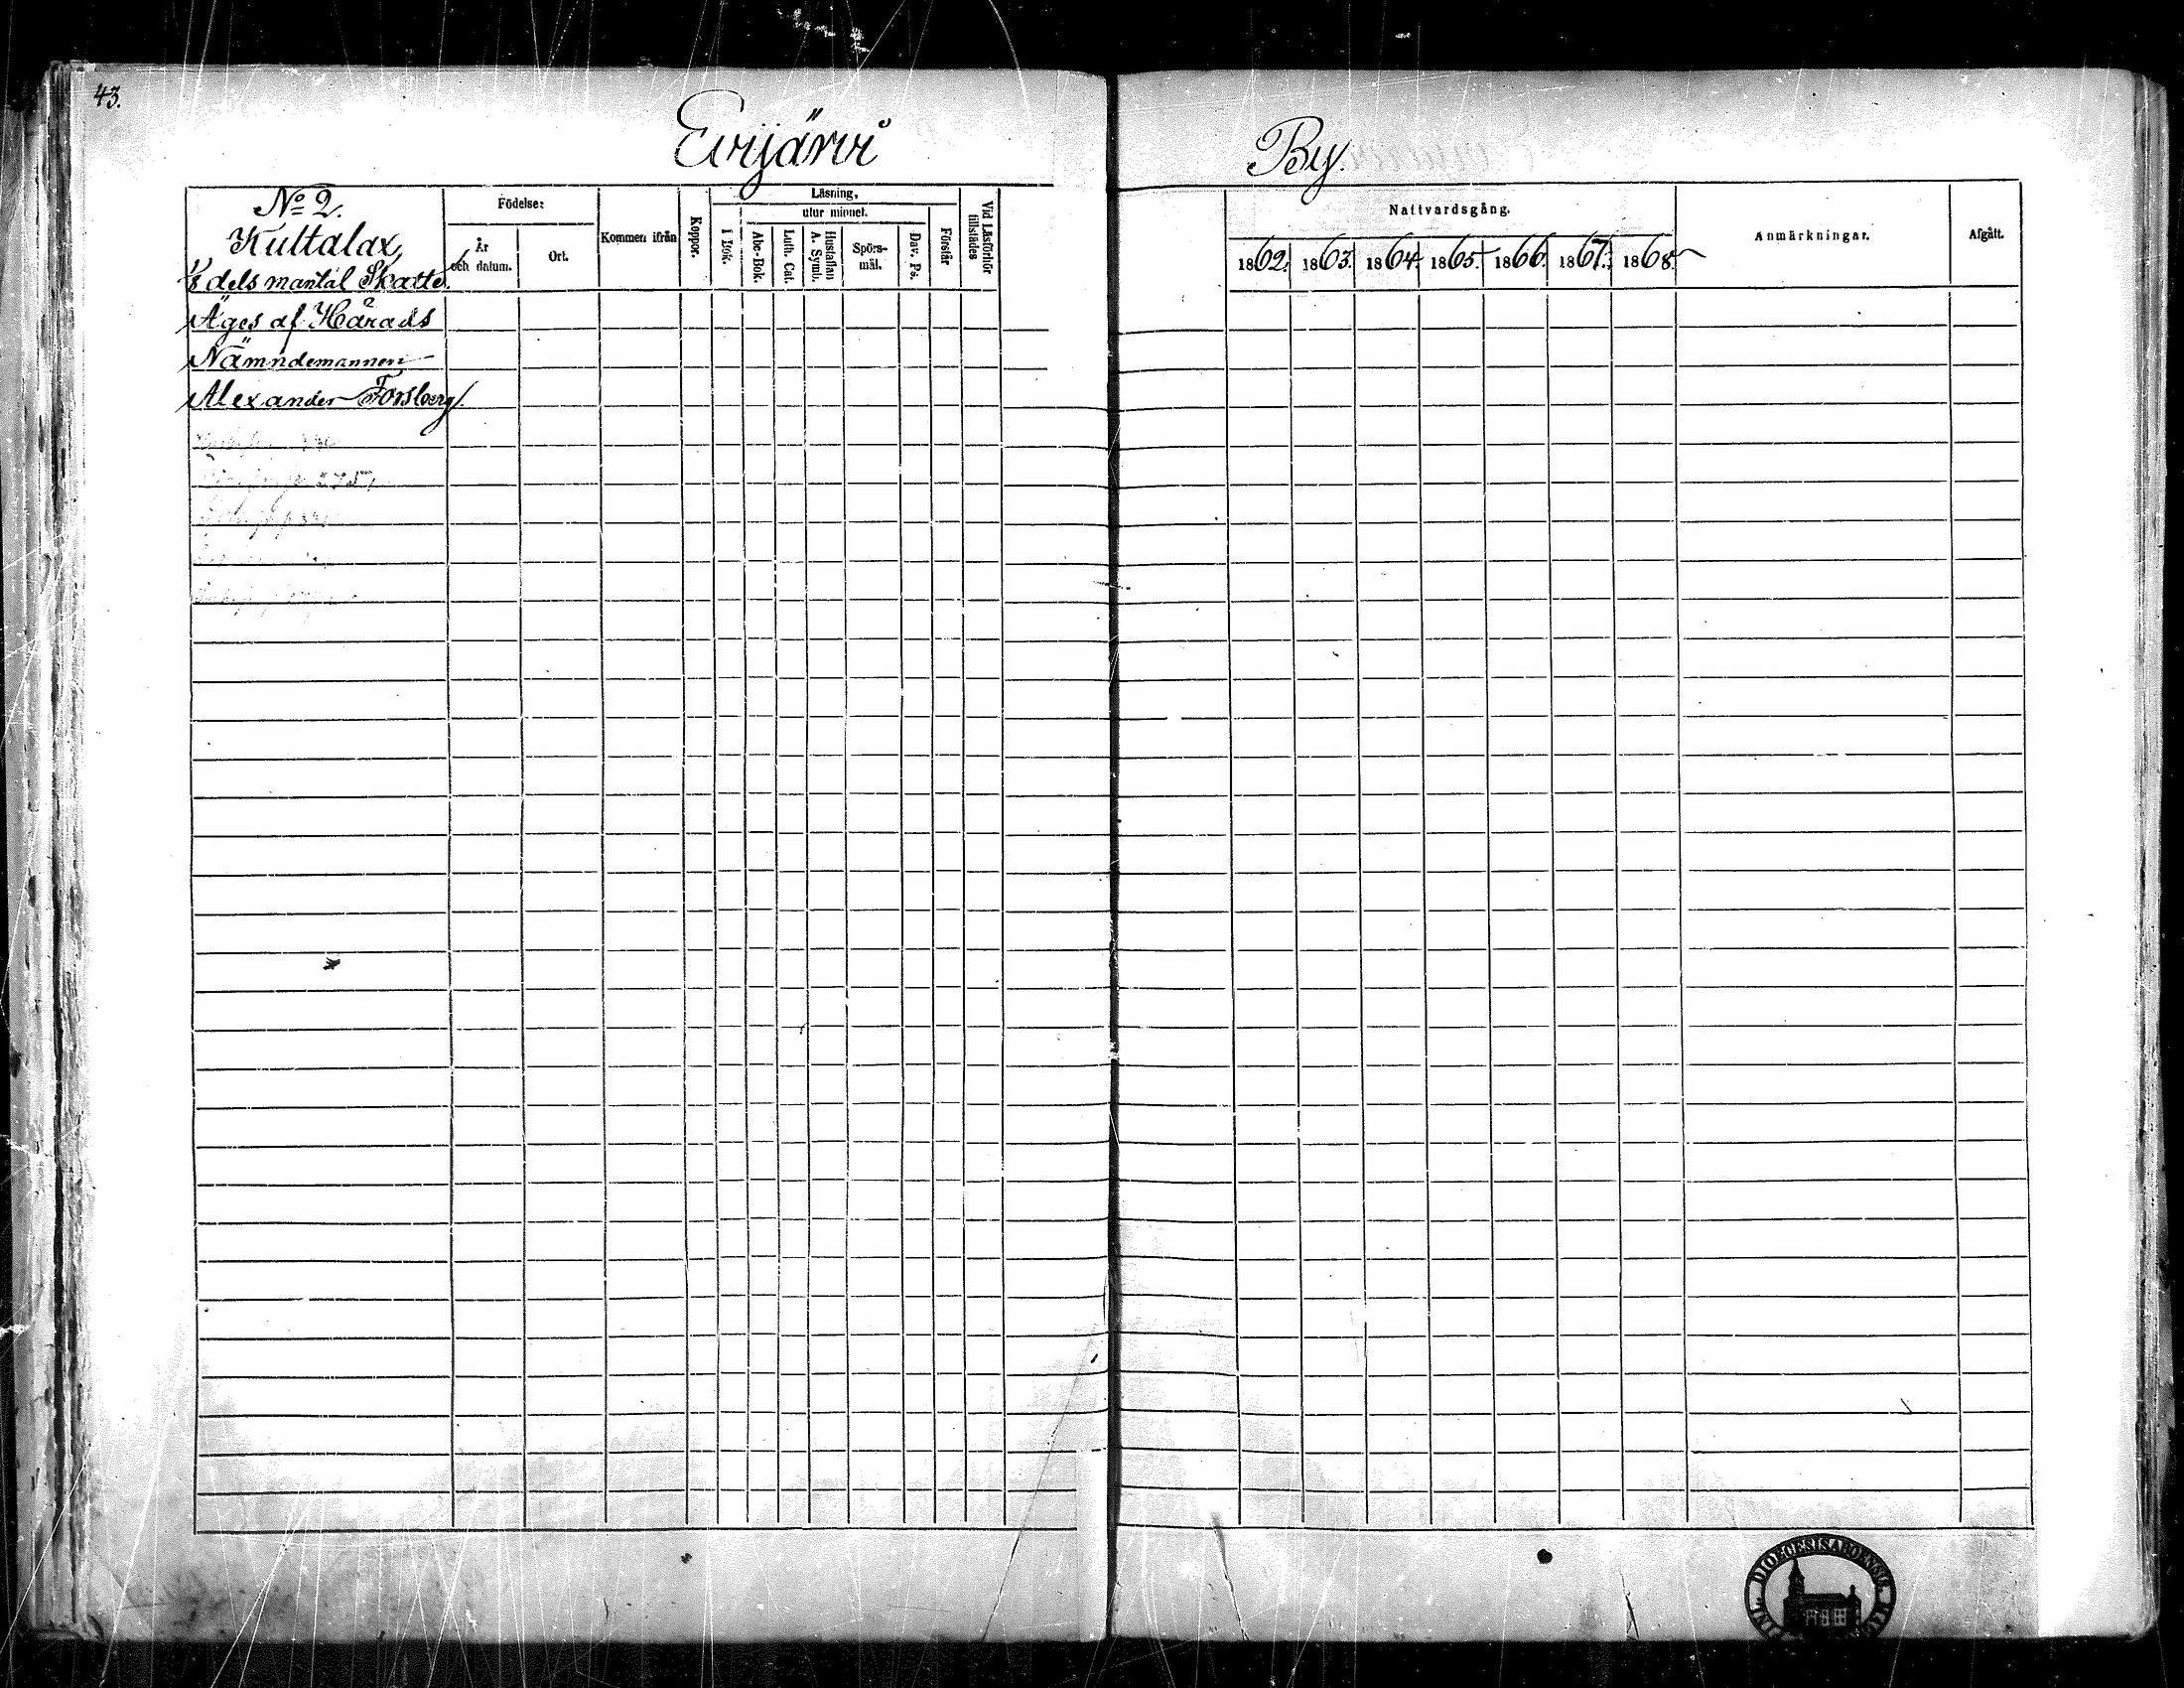 43.
Evijärvi
By.
No 2.
Kultalax,
1/8 dels mantal Skatte.
Äges af Härads
Nämndemannen
Alexander Forsberg.
Födelse:
År och datum.
Ort.
Kommen ifrån
Koppor.
Läsning,
utur minnet.
I Bok.
Abc-Bok.
Luth. Cat.
Hustaflan A. Symb.
Spörs-
mål.
Dav. Ps.
Förstår
Vid Läsförhör tillstädes
Nattvardsgång.
1862. 1863. 1864. 1865. 1866. 1867. 1868.
Anmärkningar.
Afgått.
DIOECESIS ABOENSIS